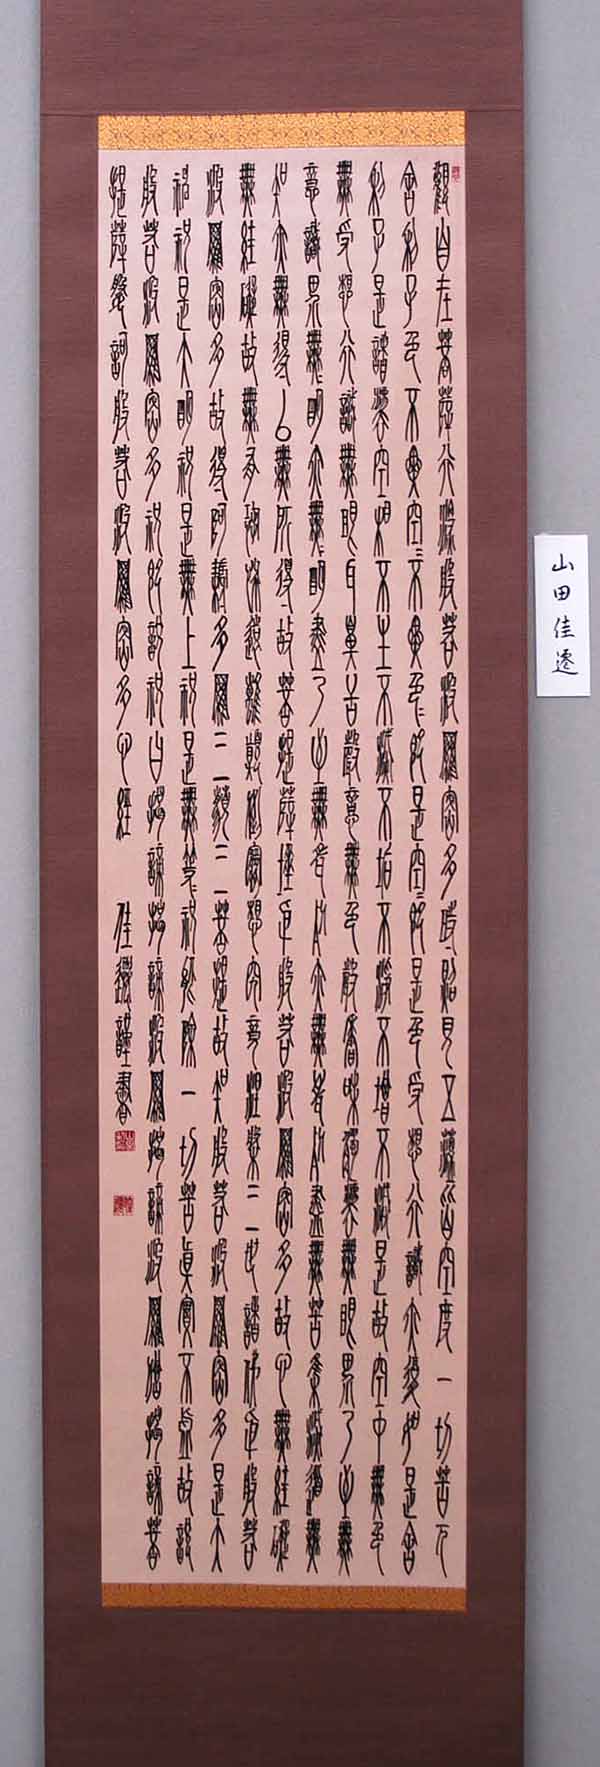 觀自在菩薩行深般若波羅蜜多時照見五蘊皆空度一切苦厄
舍利子色不異空々不異色々即是空々即是色受想行識亦復如是舍
利子是諸法空相不生不滅不垢不淨不增不減是故空中無色
無受想行識無眼耳鼻舌身意無色聲香味觸法無眼界乃至無
意識界無々明亦無々明盡乃至無老死亦無老死盡無苦集滅道無
智亦無得以無所得故菩提薩埵依般若波羅蜜多故心無罣礙
無罣礙故無有恐怖遠離顛倒夢想究竟涅槃三世諸佛依般若
波羅蜜多故得阿耨多羅三藐三菩提故知般若波羅蜜多是大
神呪是大明呪是無上呪是無等々呪能除一切苦真實不虛故說
般若波羅蜜多呪即說呪曰揭諦揭諦波羅揭諦波羅僧揭諦菩
提薩婆訶般若波羅蜜多心經 佳遷謹書
山田佳遷